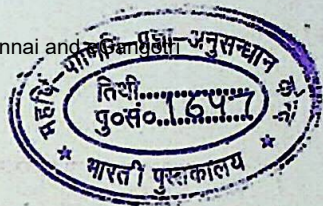 nnai and eGangotri
महर्षि-पाणिनि-प्रज्ञा-अनुसन्धान
तिथी..............
पु०सं० 1647
भारती पुस्तकालय